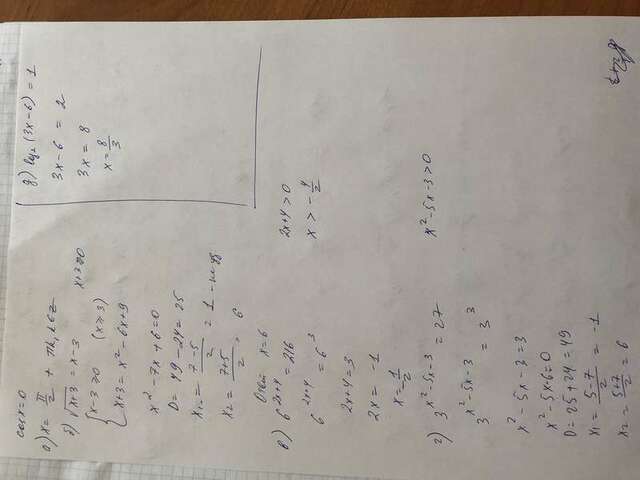 cosx=0
а) x = π/2 + πk, k∈Z
б) √x+3 = x-3    x+3≥0
{ x-3≥0 (x≥3)
x+3 = x² - 6x+9
x² - 7x + 6 = 0
D = 49 - 24 = 25
x₁ = 7-5/2 = 1 -
x₂ = 7+5/2 = 6
Ответ x=6
в) 6^2x+4 = 216    2x+4>0
6^2x+4 = 6^3    x > -4/2
2x+4=3
2x = -1
x = -1/2
г) 3^x²-5x-3 = 27    x²-5x-3>0
3^x²-5x-3 = 3^3
x² - 5x - 3 = 3
x² - 5x 6=0
D = 25+24=49
x₁ = 5-7/2 = -1
x₂ = 5+7/2 = 6
д) log₂ (3x-6) = 1
3x-6 = 2
3x = 8
x = 8/3